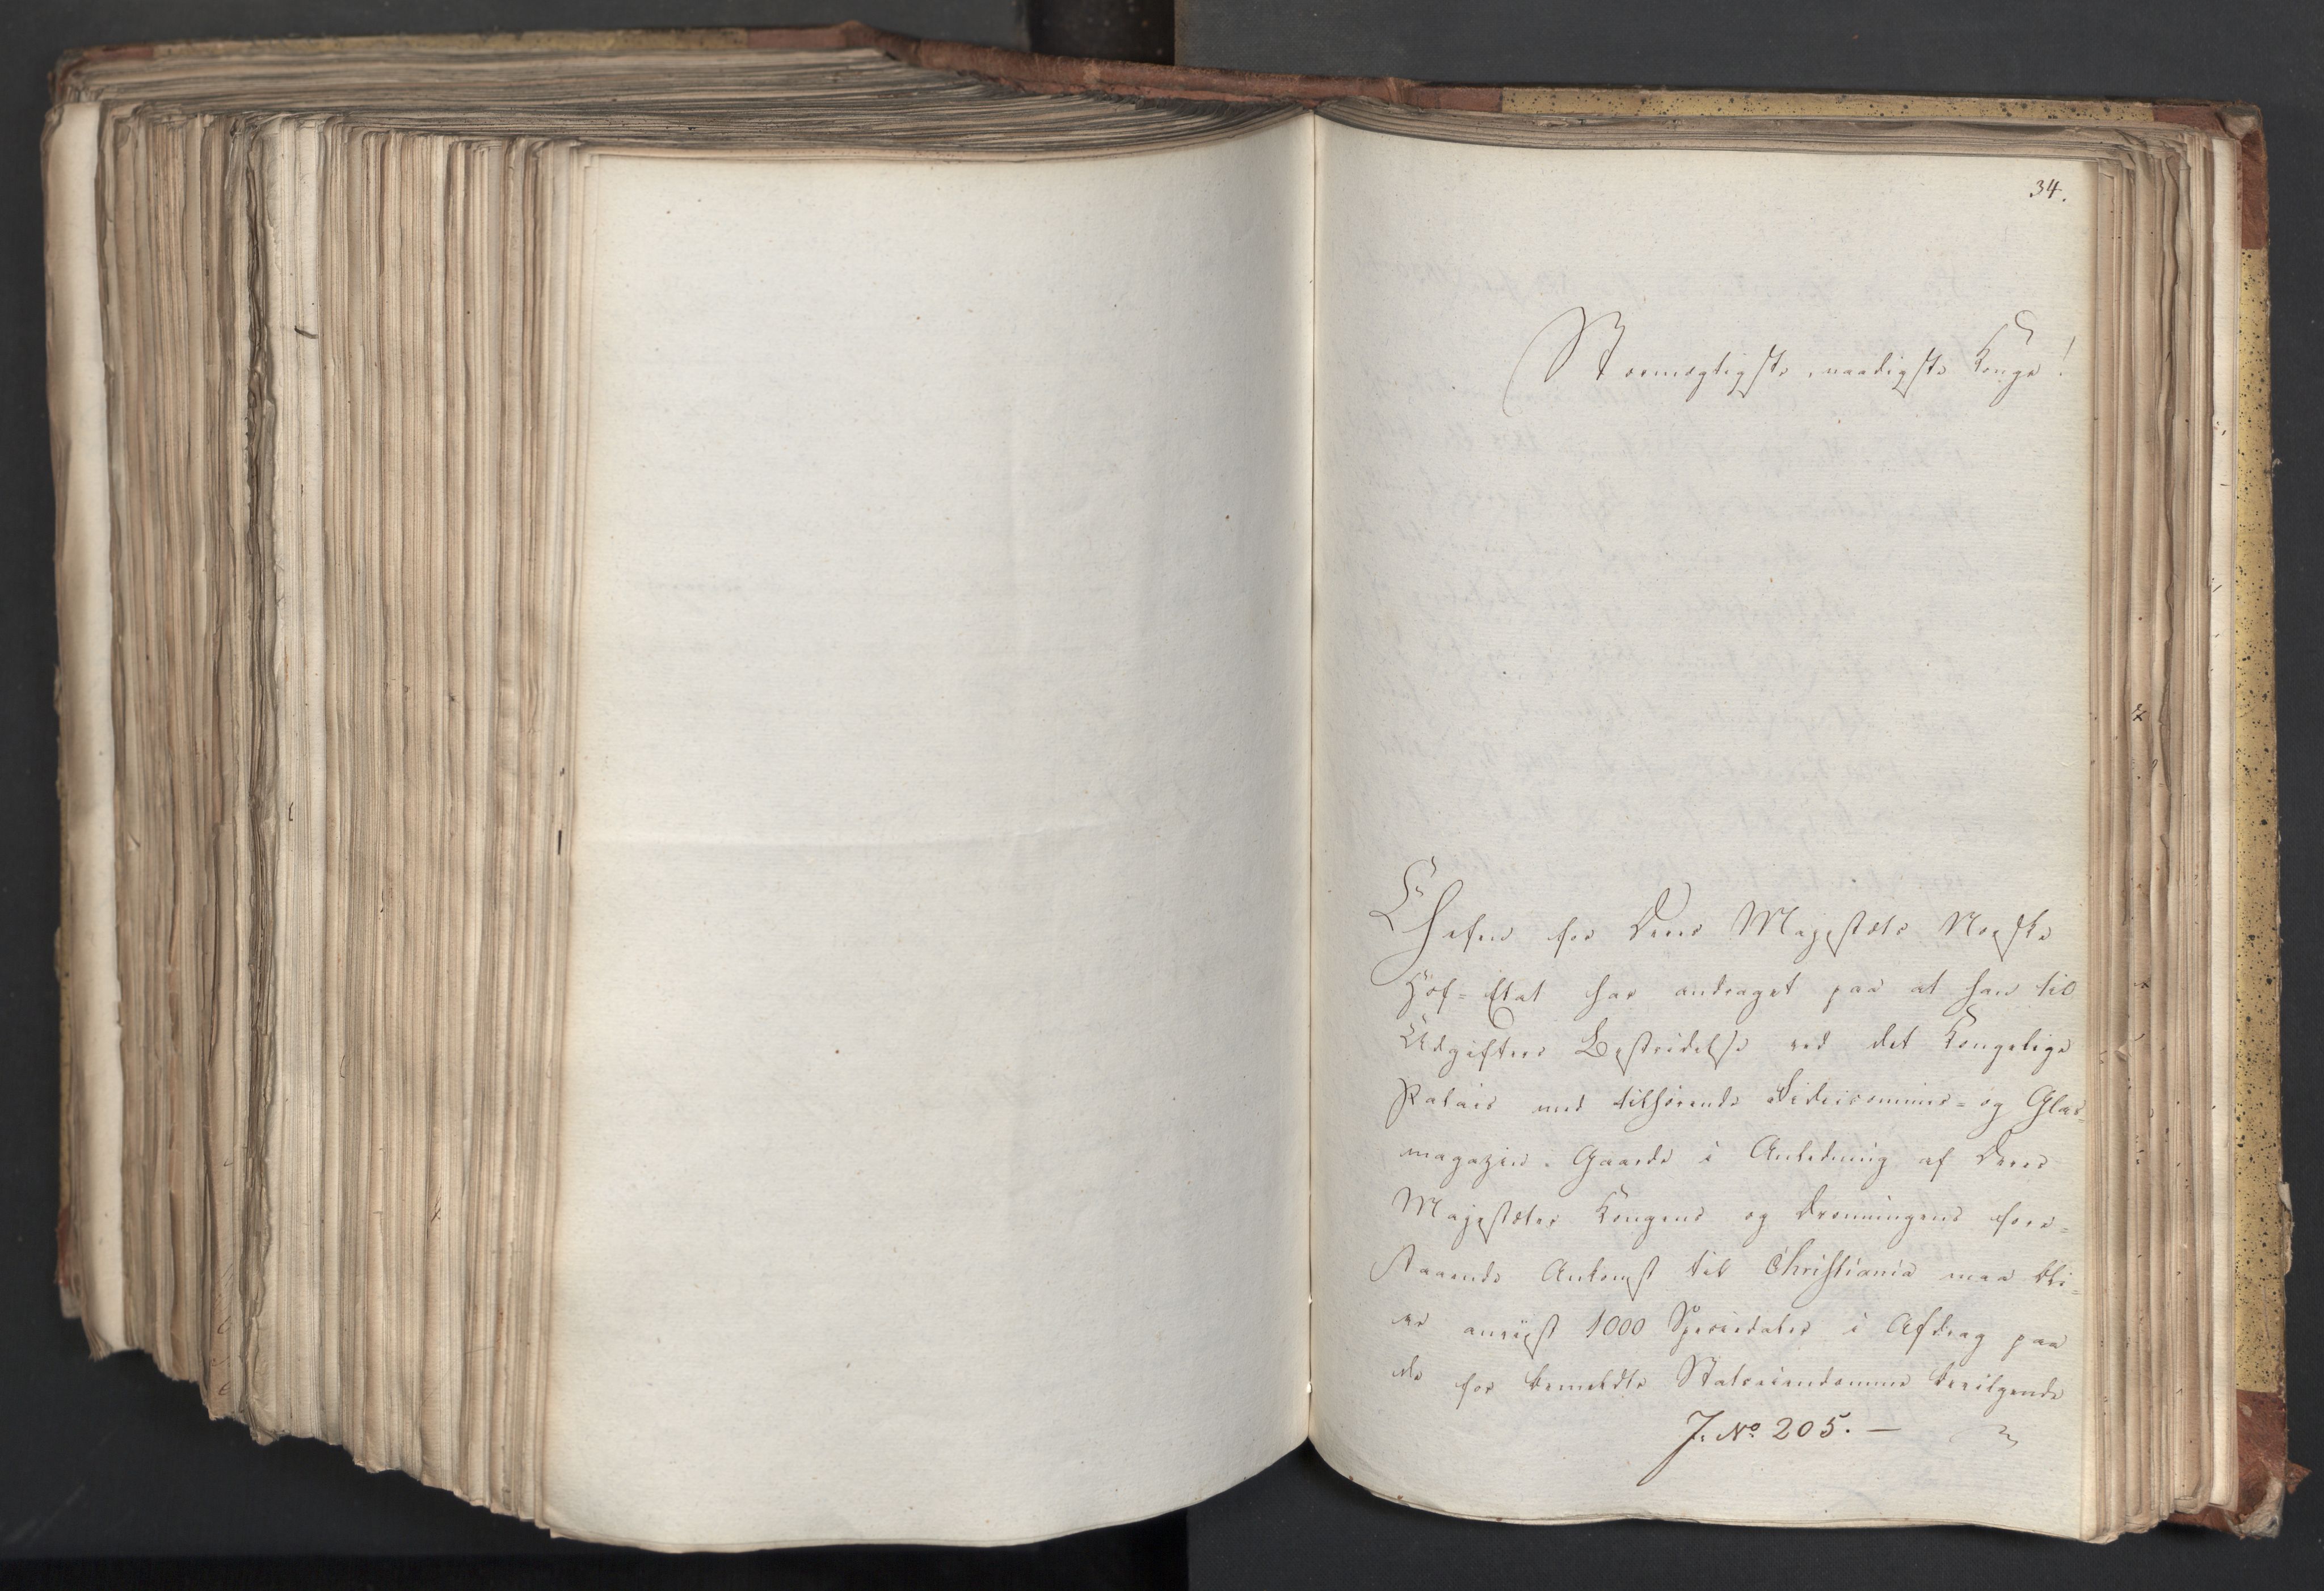 34.
Stormægtigste, naadigste Konge!
Chefen for Deres Majestæts Norske
Hof=Etat har andraget paa at han til
Udgifters Bestridelse ved det Kongelige
Palais med tilhørende Fideicommis= og Glas=
magazin-Gaarde i Anledning af Deres
Majestæters Kongens og Dronningens fore=
staaende Ankomst til Christiania maa bli=
ve anviist 1000 Speciedaler i Afdrag paa
de for bemeldte Statseiendomme bevilgende
J. No 205. —